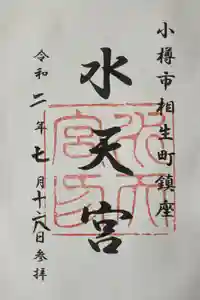 小樽市相生町鎮座
水天宮
令和二年七月十六日参拝